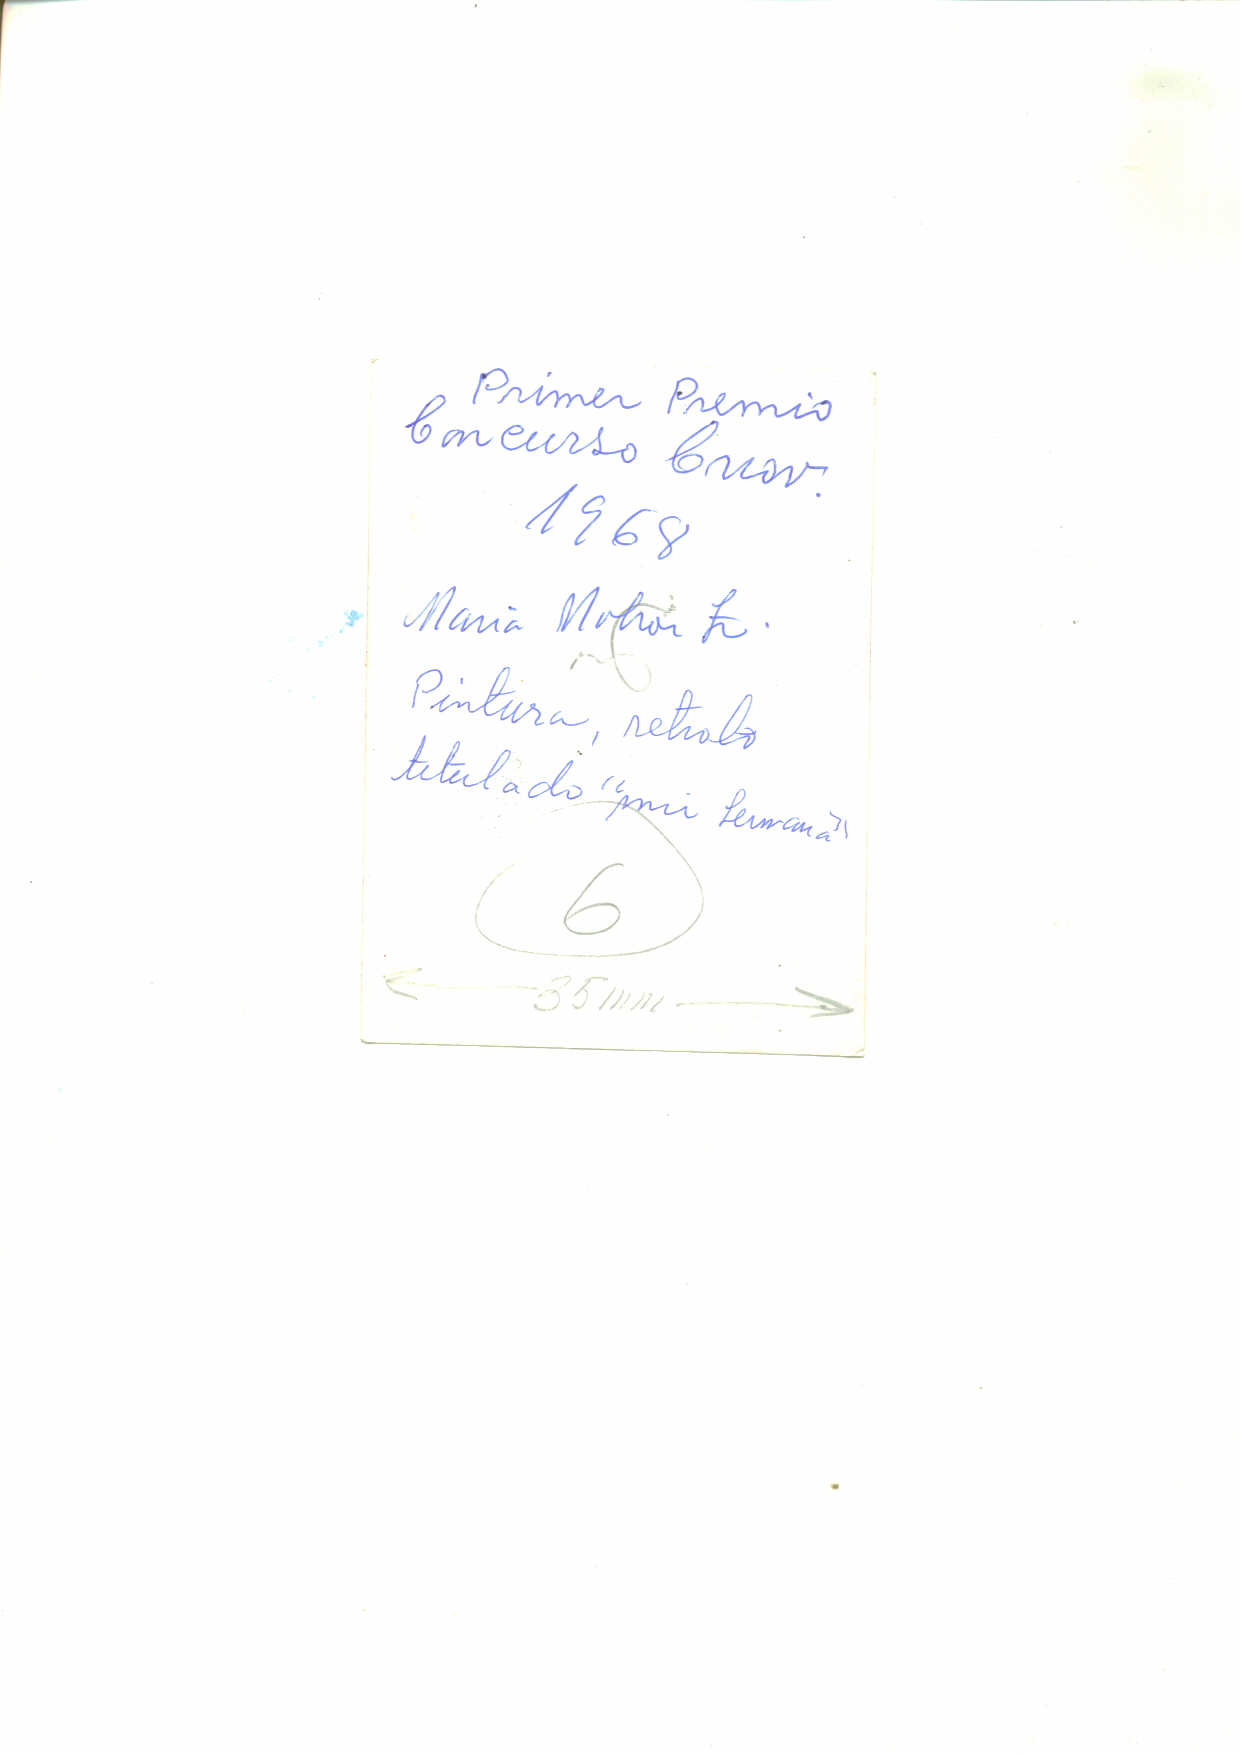 Primer Premio
Concurso Cruov.
1968
Maria
Pintura, retrato
titulado "mi hermana"
6
35 mm